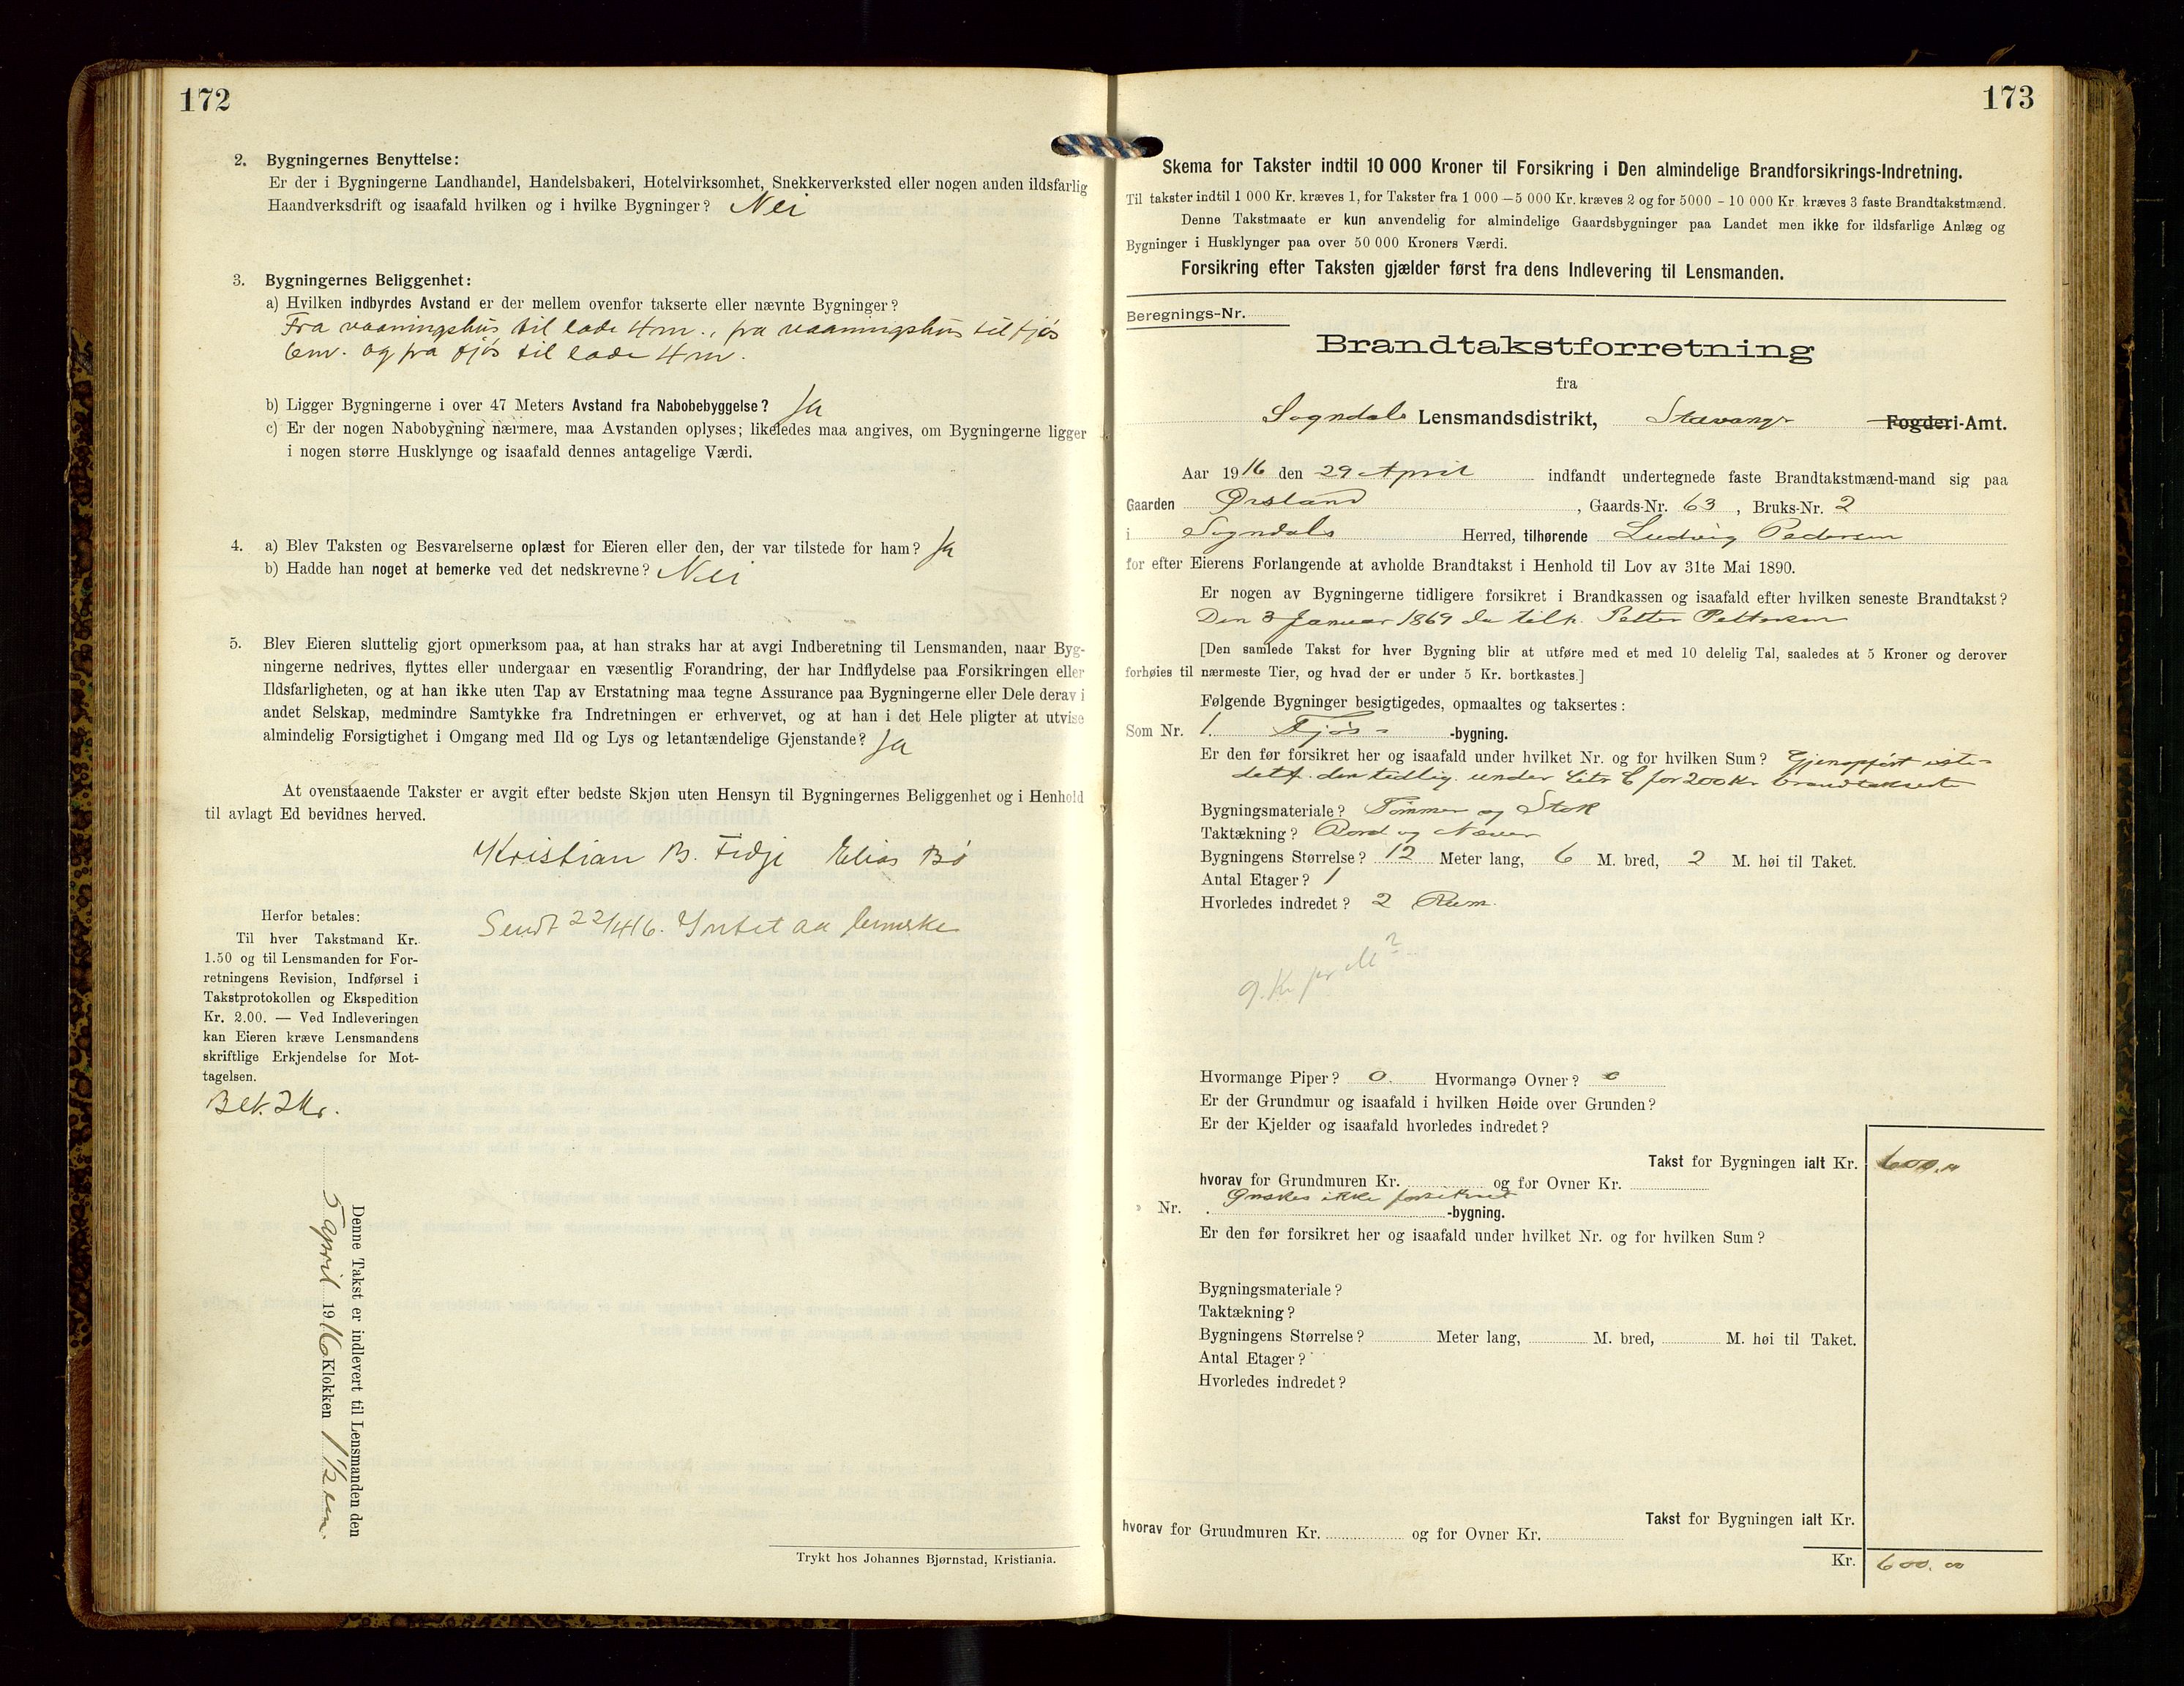 172
2. Bygningernes Benyttelse:
Er der i Bygningerne Landhandel, Handelsbakeri, Hotelvirksomhet, Snekkerverksted eller nogen anden ildsfarlig
Haandverksdrift og isaafald hvilken og i hvilke Bygninger? Nei
3. Bygningernes Beliggenhet:
a) Hvilken indbyrdes Avstand er der mellem ovenfor takserte eller nævnte Bygninger?
Fra vaaningshus til lade 4 m., fra vaaningshus til fjøs
6 m. og fra fjøs til lade 4 m.
b) Ligger Bygningerne i over 47 Meters Avstand fra Nabobebyggelse? Ja
c) Er der nogen Nabobygning nærmere, maa Avstanden oplyses; likeledes maa angives, om Bygningerne ligger
i nogen større Husklynge og isaafald dennes antagelige Værdi.
4. a) Blev Taksten og Besvarelserne oplæst for Eieren eller den, der var tilstede for ham? Ja
b) Hadde han noget at bemerke ved det nedskrevne? Nei
5. Blev Eieren sluttelig gjort opmerksom paa, at han straks har at avgi Indberetning til Lensmanden, naar Byg-
ningerne nedrives, flyttes eller undergaar en væsentlig Forandring, der har Indflydelse paa Forsikringen eller
Ildsfarligheten, og at han ikke uten Tap av Erstatning maa tegne Assurance paa Bygningerne eller Dele derav i
andet Selskap, medmindre Samtykke fra Indretningen er erhvervet, og at han i det Hele pligter at utvise
almindelig Forsigtighet i Omgang med Ild og Lys og letantændelige Gjenstande? Ja
At ovenstaaende Takster er avgit efter bedste Skjøn uten Hensyn til Bygningernes Beliggenhet og i Henhold
til avlagt Ed bevidnes herved.
Kristian B. Fidje Elias Bø
Sendt 22/4 16. Intet aa bemerke
Herfor betales:
Til hver Takstmand Kr.
1.50 og til Lensmanden for For-
retningens Revision, Indførsel i
Takstprotokollen og Ekspedition
Kr. 2.00. — Ved Indleveringen
kan Eieren kræve Lensmandens
skriftlige Erkjendelse for Mot-
tagelsen.
Bet. 2 Kr.
Denne Takst er indlevert til Lensmanden den
5 april 1916 Klokken 1 1/2 em.
Trykt hos Johannes Bjørnstad, Kristiania.
173
Skema for Takster indtil 10 000 Kroner til Forsikring i Den almindelige Brandforsikrings-Indretning.
Til takster indtil 1 000 Kr. kræves 1, for Takster fra 1 000 — 5 000 Kr. kræves 2 og for 5000 - 10 000 Kr. kræves 3 faste Brandtakstmænd.
Denne Takstmaate er kun anvendelig for almindelige Gaardsbygninger paa Landet men ikke for ildsfarlige Anlæg og
Bygninger i Husklynger paa over 50 000 Kroners Værdi.
Forsikring efter Taksten gjælder først fra dens Indlevering til Lensmanden.
Beregnings-Nr.
Brandtakstforretning
fra
Sogndals Lensmandsdistrikt, Stavanger Fogderi-Amt.
Aar 1916 den 29 April indfandt undertegnede faste Brandtakstmænd-mand sig paa
Gaarden Ørsland, Gaards-Nr. 63, Bruks-Nr. 2
i Sogndals Herred, tilhørende Ludvig Pedersen
for efter Eierens Forlangende at avholde Brandtakst i Henhold til Lov av 31te Mai 1890.
Er nogen av Bygningerne tidligere forsikret i Brandkassen og isaafald efter hvilken seneste Brandtakst?
Den 3 Januar 1869 da tilh. Petter Pettersen
[Den samlede Takst for hver Bygning blir at utføre med et med 10 delelig Tal, saaledes at 5 Kroner og derover
forhøies til nærmeste Tier, og hvad der er under 5 Kr. bortkastes.]
Følgende Bygninger besigtigedes, opmaaltes og taksertes:
Som Nr. 1. Fjøs- -bygning.
Er den før forsikret her og isaafald under hvilket Nr. og for hvilken Sum? Gjenopført iste-
detf. den tidlig. under Litr C for 200 Kr. brandtakserte
Bygningsmateriale? Tømmer og Stok
Taktækning? Bord og Næver
Bygningens Størrelse? 12 Meter lang, 6 M. bred, 2 M. høi til Taket.
Antal Etager? 1
Hvorledes indredet? 2 Rum.
9. Kr pr M²
Hvormange Piper? 0. Hvormange Ovner? 0
Er der Grundmur og isaafald i hvilken Høide over Grunden?
Er der Kjelder og isaafald hvorledes indredet?
Takst for Bygningen ialt Kr. 600.
hvorav for Grundmuren Kr. og for Ovner Kr.
Ønskes ikke forsikret
» Nr. -bygning.
Er den før forsikret her og isaafald under hvilket Nr. og for hvilken Sum?
Bygningsmateriale?
Taktækning?
Bygningens Størrelse? Meter lang, M. bred, M. høi til Taket.
Antal Etager?
Hvorledes indredet?
Takst for Bygningen ialt Kr.
hvorav for Grundmuren Kr. og for Ovner Kr.
Kr. 600.00